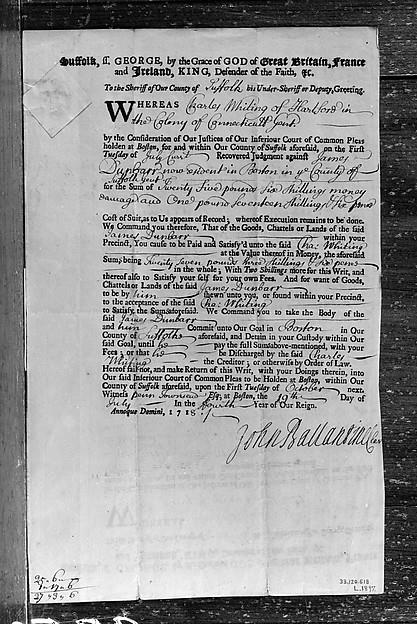 Suffolk, ſſ. GEORGE, by the Grace of GOD of Great Britain, France
and Ireland, KING, Defender of the Faith, &c.
To the Sheriff of Our County of Suffolk his Under-Sheriff or Deputy, Greeting.
WHEREAS Charles Whiting of Hartford in
the Colony of Connecticutt Gent
by the Conſideration of Our Juſtices of Our Inferiour Court of Common Pleas
holden at Boſton, for and within Our County of Suffolk aforeſaid, on the Firſt
Tueſday of July Curt Recovered Judgment againſt James
Dunbarr now resident in Boston in ye County of
Suffolk Gent
for the Sum of Twenty Five pound Six Shilling money
and One pound Seventeen Shillings Six pence
Coſt of Suit, as to Us appears of Record; whereof Execution remains to be done.
We Command you therefore, That of the Goods, Chattels or Lands of the ſaid
James Dunbarr within your
Precinct, You cauſe to be Paid and Satisfy'd unto the ſaid Cha: Whiting
at the Value thereof in Money, the aforeſaid
Sums, being Twenty Seven pounds three Shillings & Six pence
in the whole; With Two Shillings more for this Writ, and
thereof alſo to Satisfy your ſelf for your own Fees. And for want of Goods,
Chattels or Lands of the ſaid James Dunbarr
to be by him ſhewn unto you, or found within your Precinct,
to the acceptance of the ſaid Cha: Whiting
to Satisfy the Sums aforeſaid. We Command you to Take the Body of the
ſaid James Dunbarr
and him Commit unto Our Goal in Boston in Our
County of Suffolk aforeſaid, and Detain in your Cuſtody within Our
ſaid Goal, until he pay the full Sums above-mentioned, with your
Fees; or that he be Diſcharged by the ſaid Charles
Whiting the Creditor; or otherwiſe by Order of Law.
Hereof fail not, and make Return of this Writ, with your Doings therein, into
Our ſaid Inferiour Court of Common Pleas to be Holden at Boſton, within Our
County of Suffolk aforeſaid, upon the Firſt Tueſday of October next.
Witneſs Penn Townsend Eſq; at Boſton, the 19th Day of
July In the Fourth Year of Our Reign.
Annoque Domini, 1718.
John Ballantine Cler
25 " 6 "
1 " 17 " 6
27 " 3 " 6
33.120.618
L.1897